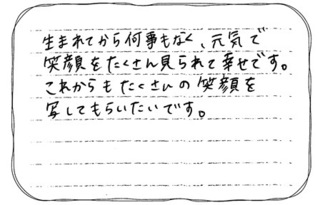 生まれてから何事もなく、元気で
笑顔をたくさん見られて幸せです。
これからもたくさんの笑顔を
写してもらいたいです。